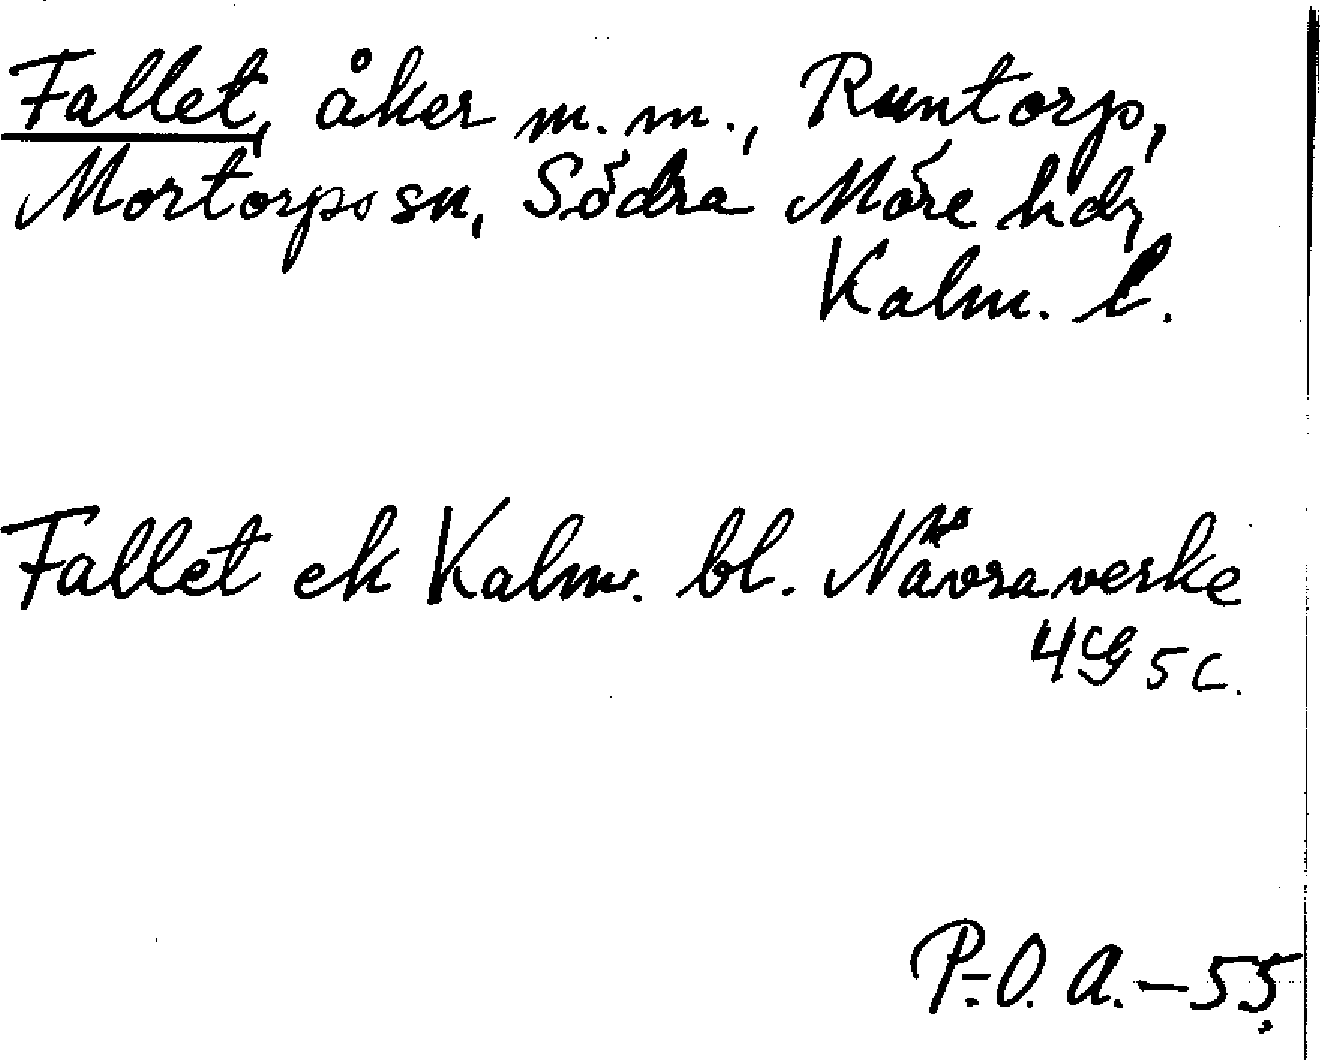 Fallet, åker m.m., Runtorp,
Mortorps sn, Södra Möre hd,
Kalm. l.
Fallet ek Kalm. bl. Nävraverke
4G 5c.
P.-O. A. – 55.